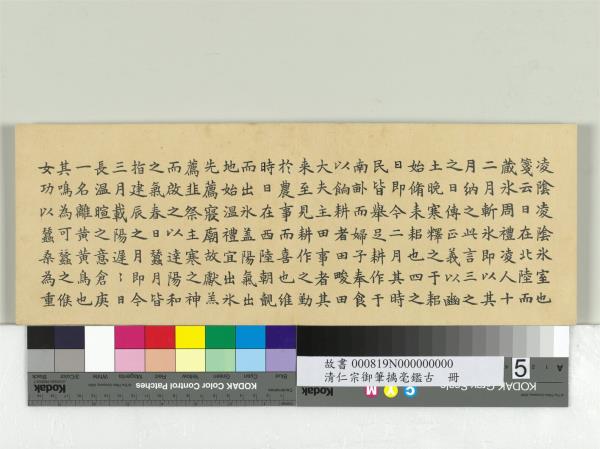 凌陰凌陰氷室也
箋云日在北陸而
藏氷周禮凌人十
二月斬氷即以其
月納之此言三之
之日傳正義以豳
土晚寒釋之于耜
始脩耒耜也四之
日即今二月其時
民皆舉足耕作于
南畝而婦子奉食
以餉耕者田畯田
大夫主田事者其
來至見其耕作勤
於農事而喜也維
時日在西陸朝覿
而出氷蓋陽氣出
地始溫禮宜出氷
先薦寢廟故獻羔
薦韭祭主寒之神
而啟之以達陽和
之氣春日蠶月皆
指建辰之月即今
三月載陽遲〻日
長溫暄之意倉庚
一名離黃黃鳥也
其鳴為可蠶之候
女功以蠶桑為重
Blue Cyan Green Yellow Red Magenta White 3/Color Black
Kodak KODAK Color Control Patches
故書 000819N000000000
清仁宗御筆擒毫鑑古 冊
5
A 1 2
Kodak C Y M KODAK Gray Scale